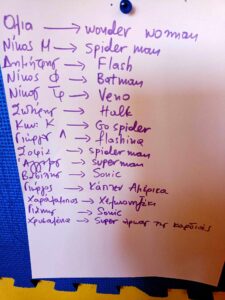 Όλια → wonder woman
Νίκος Μ → spider man
Δημήτρης → Flash
Νίκος Φ → Batman
Νίκος Τρ → Veno
Σωτήρης → Halk
Κων. Κ → Go spider
Γιώργος Λ → flashina
Σοφία → spider man
Άγγελος → super man
Βαγγέλης → Sonic
Γιώργος → Κάπτεν Αμέρικα
Χαράλαμπος →
Γιάννης → Sonic
Χρυσάνθη → Super ήρωας της καρδιάς